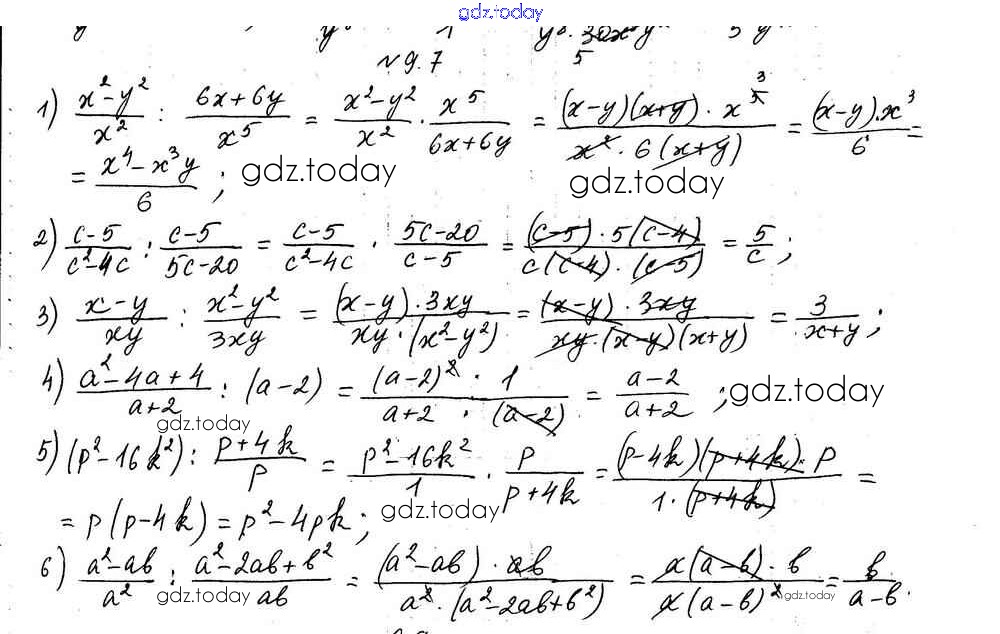 gdz.today
№9.7
1) (x²-y²)/x² : (6x+6y)/x⁵ = (x²-y²)/x² · x⁵/(6x+6y) = ((x-y)(x+y) · x⁵ ³)/(x² · 6(x+y)) = ((x-y)·x³)/6 =
= (x⁴-x³y)/6 ; gdz.today gdz.today
2) (c-5)/(c²-4c) : (c-5)/(5c-20) = (c-5)/(c²-4c) · (5c-20)/(c-5) = ((c-5)·5(c-4))/(c(c-4)·(c-5)) = 5/c ;
3) (x-y)/(xy) : (x²-y²)/(3xy) = ((x-y)·3xy)/(xy·(x²-y²)) = ((x-y)·3xy)/(xy·(x-y)(x+y)) = 3/(x+y) ;
4) (a²-4a+4)/(a+2) : (a-2) = ((a-2)²·1)/(a+2·(a-2)) = (a-2)/(a+2) ; gdz.today
gdz.today
5) (p²-16k²) : (p+4k)/p = (p²-16k²)/1 · p/(p+4k) = ((p-4k)(p+4k)·p)/(1·(p+4k)) =
= p(p-4k) = p²-4pk ; gdz.today
6) (a²-ab)/a² : (a²-2ab+b²)/(ab) = ((a²-ab)·ab)/(a²·(a²-2ab+b²)) = (a(a-b)·b)/(a(a-b)²) = b/(a-b).
gdz.today gdz.today gdz.today